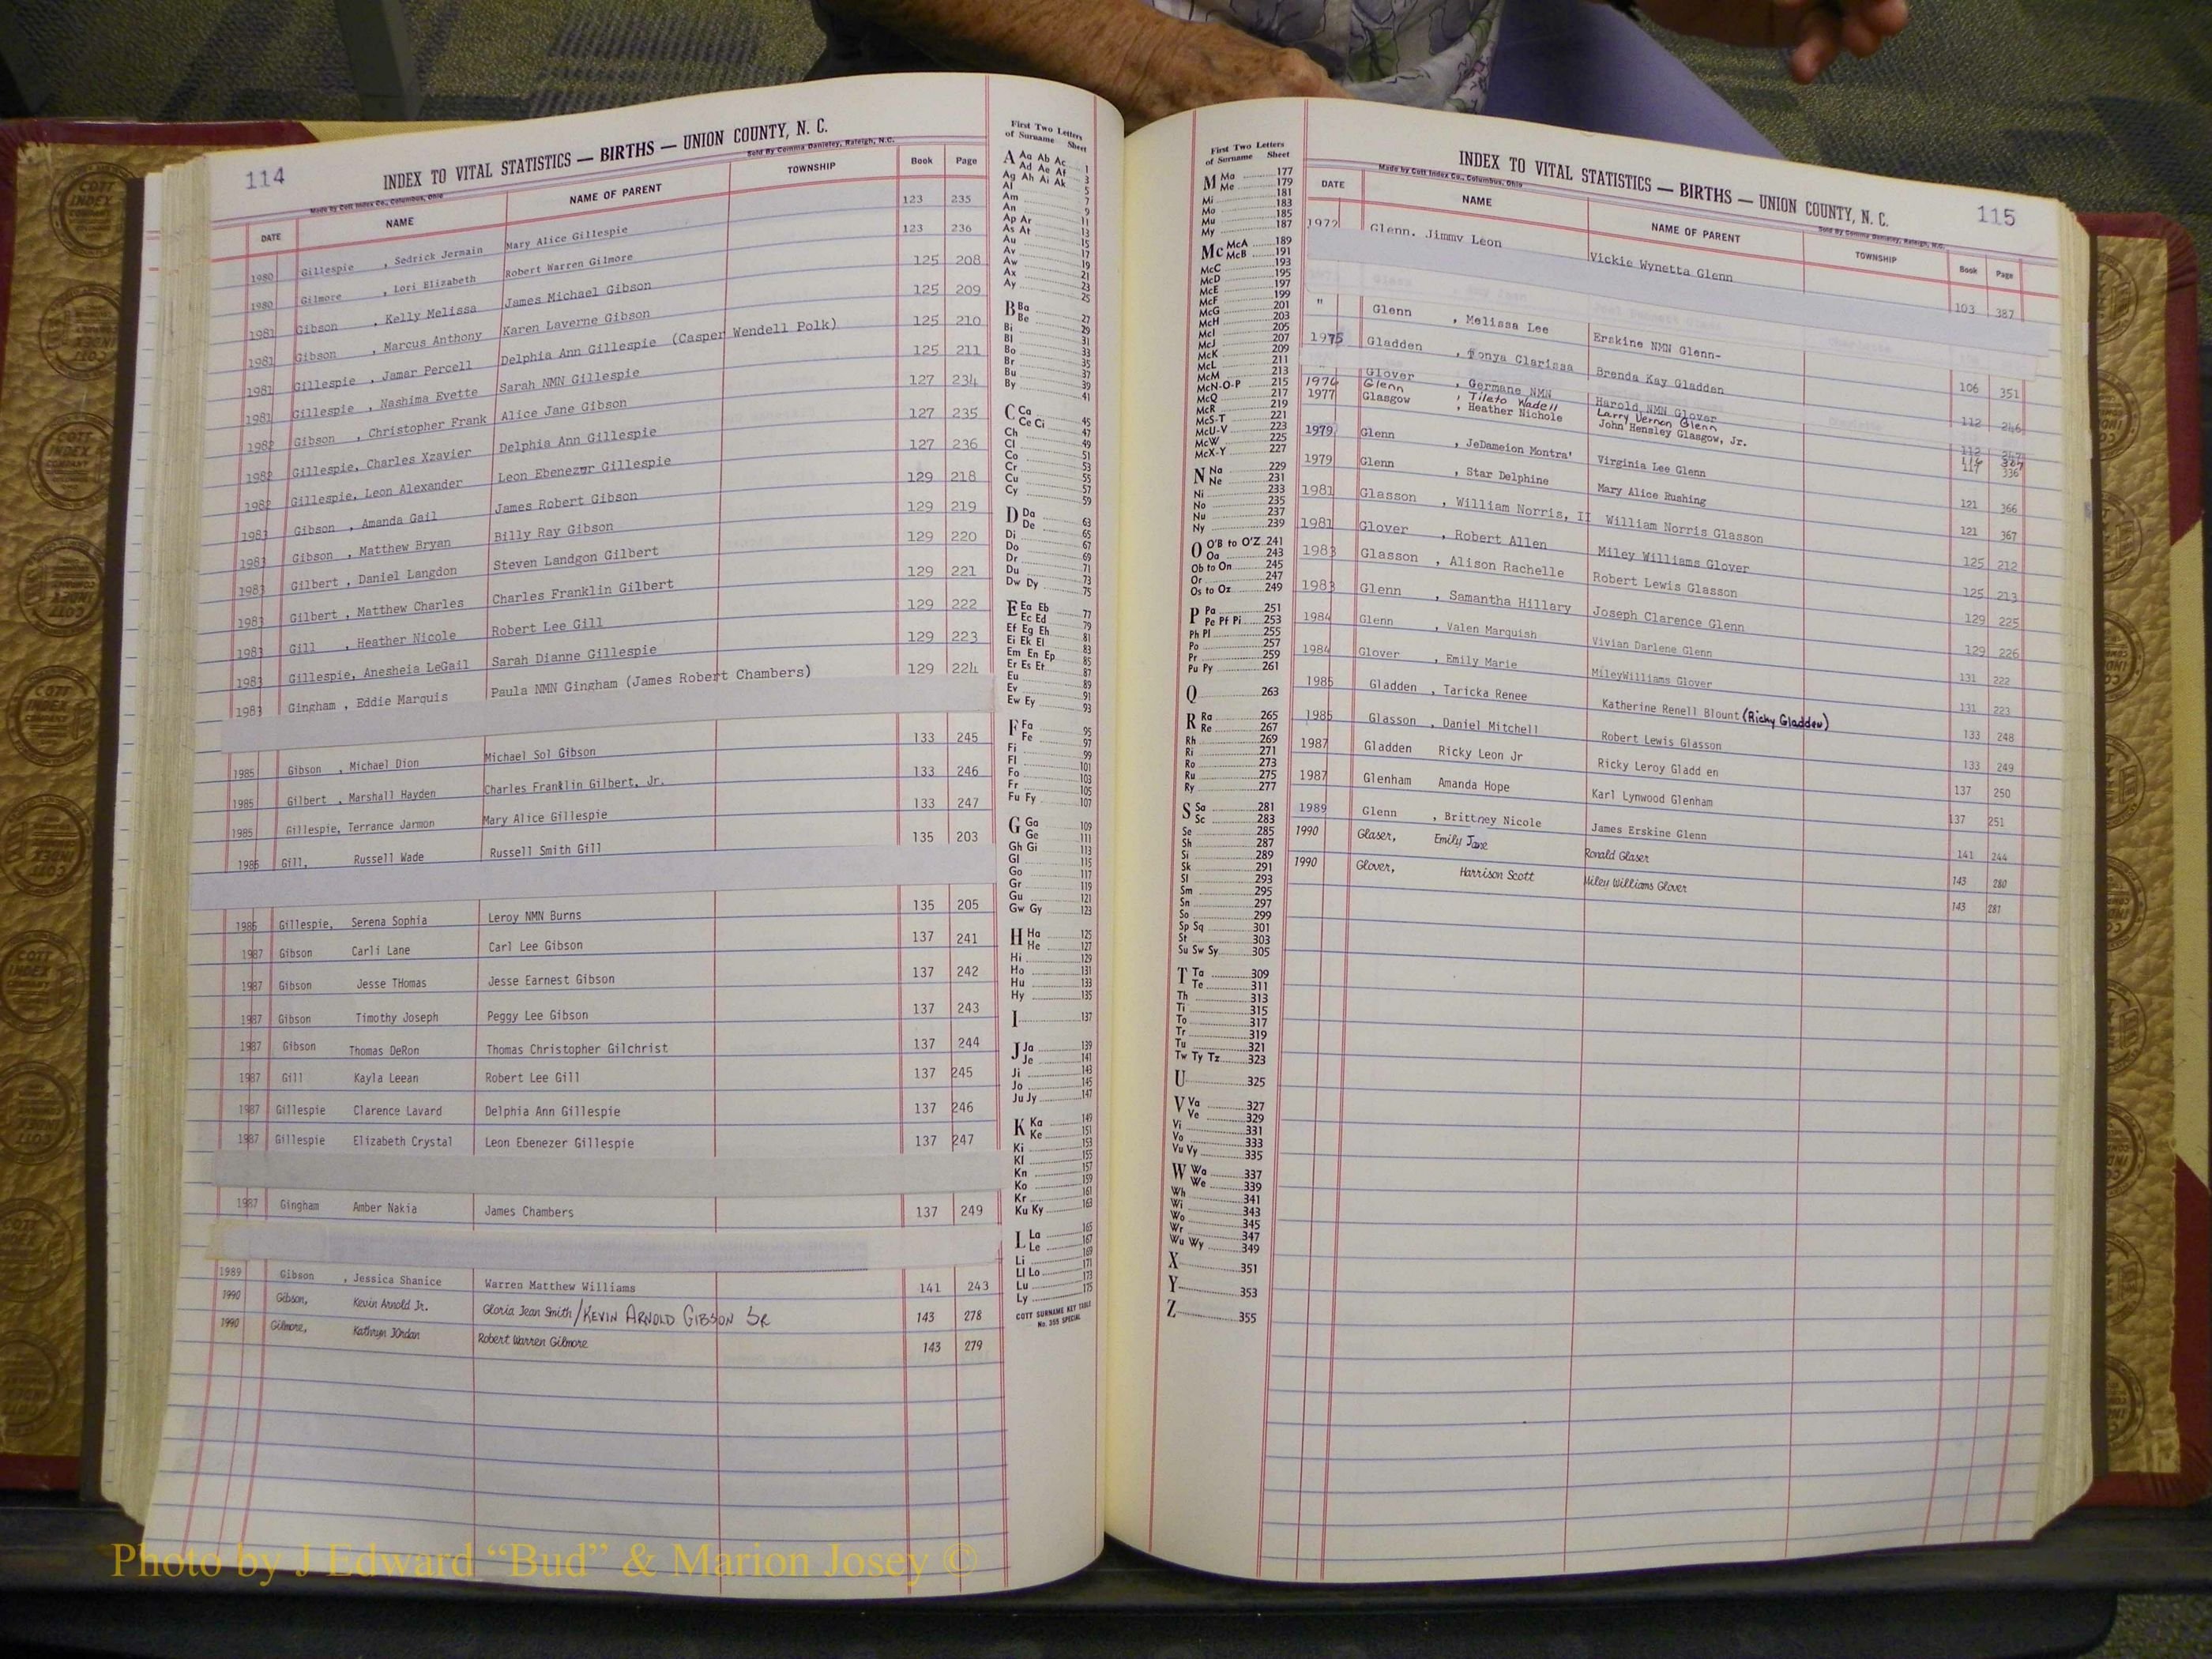 114
INDEX TO VITAL STATISTICS — BIRTHS — UNION COUNTY, N. C.
Made by Cott Index Co., Columbus, Ohio
Sold By Comma Danieley, Raleigh, N.C.
DATE NAME NAME OF PARENT TOWNSHIP Book Page
1980 Gillespie , Sedrick Jermain Mary Alice Gillespie 123 235
1980 Gilmore , Lori Elizabeth Robert Warren Gilmore 123 236
1981 Gibson , Kelly Melissa James Michael Gibson 125 208
1981 Gibson , Marcus Anthony Karen Laverne Gibson 125 209
1981 Gillespie , Jamar Percell Delphia Ann Gillespie (Casper Wendell Polk) 125 210
1981 Gillespie , Nashima Evette Sarah NMN Gillespie 125 211
1982 Gibson , Christopher Frank Alice Jane Gibson 127 234
1982 Gillespie, Charles Xzavier Delphia Ann Gillespie 127 235
1982 Gillespie, Leon Alexander Leon Ebenezer Gillespie 127 236
1983 Gibson , Amanda Gail James Robert Gibson 129 218
1983 Gibson , Matthew Bryan Billy Ray Gibson 129 219
1983 Gilbert , Daniel Langdon Steven Landgon Gilbert 129 220
1983 Gilbert , Matthew Charles Charles Franklin Gilbert 129 221
1983 Gill , Heather Nicole Robert Lee Gill 129 222
1983 Gillespie, Anesheia LeGail Sarah Dianne Gillespie 129 223
1983 Gingham , Eddie Marquis Paula NMN Gingham (James Robert Chambers) 129 224
1985 Gibson , Michael Dion Michael Sol Gibson 133 245
1985 Gilbert , Marshall Hayden Charles Franklin Gilbert, Jr. 133 246
1985 Gillespie, Terrance Jarmon Mary Alice Gillespie 133 247
1986 Gill, Russell Wade Russell Smith Gill 135 203
1986 Gillespie, Serena Sophia Leroy NMN Burns 135 205
1987 Gibson Carli Lane Carl Lee Gibson 137 241
1987 Gibson Jesse THomas Jesse Earnest Gibson 137 242
1987 Gibson Timothy Joseph Peggy Lee Gibson 137 243
1987 Gibson Thomas DeRon Thomas Christopher Gilchrist 137 244
1987 Gill Kayla Leean Robert Lee Gill 137 245
1987 Gillespie Clarence Lavard Delphia Ann Gillespie 137 246
1987 Gillespie Elizabeth Crystal Leon Ebenezer Gillespie 137 247
1987 Gingham Amber Nakia James Chambers 137 249
1989 Gibson , Jessica Shanice Warren Matthew Williams 141 243
1990 Gibson, Kevin Arnold Jr. Gloria Jean Smith/KEVIN ARNOLD GIBSON SR 143 278
1990 Gilmore, Kathryn JOrdan Robert Warren Gilmore 143 279
First Two Letters
of Surname Sheet
A Aa Ab Ac 1
Ad Ae Af 3
Ag Ah Ai Ak 5
Al 7
Am 9
An 11
Ap Ar 13
As At 15
Au 17
Av 19
Aw 21
Ax 23
Ay 25
B Ba 27
Be 29
Bi 31
Bl 33
Bo 35
Br 37
Bu 39
By 41
C Ca 45
Ce Ci 47
Ch 49
Cl 51
Co 53
Cr 55
Cu 57
Cy 59
D Da 63
De 65
Di 67
Do 69
Dr 71
Du 73
Dw Dy 75
E Ea Eb 77
Ec Ed 79
Ef Eg Eh 81
Ei Ek El 83
Em En Ep 85
Er Es Et 87
Eu 89
Ev 91
Ew Ey 93
F Fa 95
Fe 97
Fi 99
Fl 101
Fo 103
Fr 105
Fu Fy 107
G Ga 109
Ge 111
Gh Gi 113
Gl 115
Go 117
Gr 119
Gu 121
Gw Gy 123
H Ha 125
He 127
Hi 129
Ho 131
Hu 133
Hy 135
I 137
J Ja 139
Je 141
Ji 143
Jo 145
Ju Jy 147
K Ka 149
Ke 151
Ki 153
Kl 155
Kn 157
Ko 159
Kr 161
Ku Ky 163
L La 165
Le 167
Li 169
Ll Lo 171
Lu 173
Ly 175
COTT SURNAME KEY TABLE
No. 355 SPECIAL
First Two Letters
of Surname Sheet
M Ma 177
Me 179
Mi 181
Mo 183
Mu 185
My 187
Mc McA 189
McB 191
McC 193
McD 195
McE 197
McF 199
McG 201
McH 203
McI 205
McJ 207
McK 209
McL 211
McM 213
McN-O-P 215
McQ 217
McR 219
McS-T 221
McU-V 223
McW 225
McX-Y 227
N Na 229
Ne 231
Ni 233
No 235
Nu 237
Ny 239
O O'B to O'Z 241
Oa 243
Ob to On 245
Or 247
Os to Oz 249
P Pa 251
Pe Pf Pi 253
Ph Pl 255
Po 257
Pr 259
Pu Py 261
Q 263
R Ra 265
Re 267
Rh 269
Ri 271
Ro 273
Ru 275
Ry 277
S Sa 281
Sc 283
Se 285
Sh 287
Si 289
Sk 291
Sl 293
Sm 295
Sn 297
So 299
Sp Sq 301
St 303
Su Sw Sy 305
T Ta 309
Te 311
Th 313
Ti 315
To 317
Tr 319
Tu 321
Tw Ty Tz 323
U 325
V Va 327
Ve 329
Vi 331
Vo 333
Vu Vy 335
W Wa 337
We 339
Wh 341
Wi 343
Wo 345
Wr 347
Wu Wy 349
X 351
Y 353
Z 355
115
INDEX TO VITAL STATISTICS — BIRTHS — UNION COUNTY, N. C.
Made by Cott Index Co., Columbus, Ohio
Sold By Comma Danieley, Raleigh, N.C.
DATE NAME NAME OF PARENT TOWNSHIP Book Page
1972 Glenn, Jimmy Leon Vickie Wynetta Glenn 103 387
" Glenn , Melissa Lee Erskine NMN Glenn- 106 351
1975 Gladden , Tonya Clarissa Brenda Kay Gladden 112 246
Glover , Germane NMN Harold NMN Glover 112
1976 Glenn , Tilato Wadell Larry Vernon Glenn
1977 Glasgow , Heather Nichole John Hensley Glasgow, Jr. 117 336
1979 Glenn , JeDameion Montra' Virginia Lee Glenn 121 366
1979 Glenn , Star Delphine Mary Alice Rushing 121 367
1981 Glasson , William Norris, II William Norris Glasson 125 212
1981 Glover , Robert Allen Miley Williams Glover 125 213
1983 Glasson , Alison Rachelle Robert Lewis Glasson 129 225
1983 Glenn , Samantha Hillary Joseph Clarence Glenn 129 226
1984 Glenn , Valen Marquish Vivian Darlene Glenn 131 222
1984 Glover , Emily Marie MileyWilliams Glover 131 223
1985 Gladden , Taricka Renee Katherine Renell Blount (Ricky Gladden) 133 248
1985 Glasson , Daniel Mitchell Robert Lewis Glasson 133 249
1987 Gladden Ricky Leon Jr Ricky Leroy Gladd en 137 250
1987 Glenham Amanda Hope Karl Lynwood Glenham 137 251
1989 Glenn , Brittney Nicole James Erskine Glenn 141 244
1990 Glaser, Emily Jane Ronald Glaser 143 280
1990 Glover, Harrison Scott Miley Williams Glover 143 281
Photo by J Edward “Bud” & Marion Josey ©